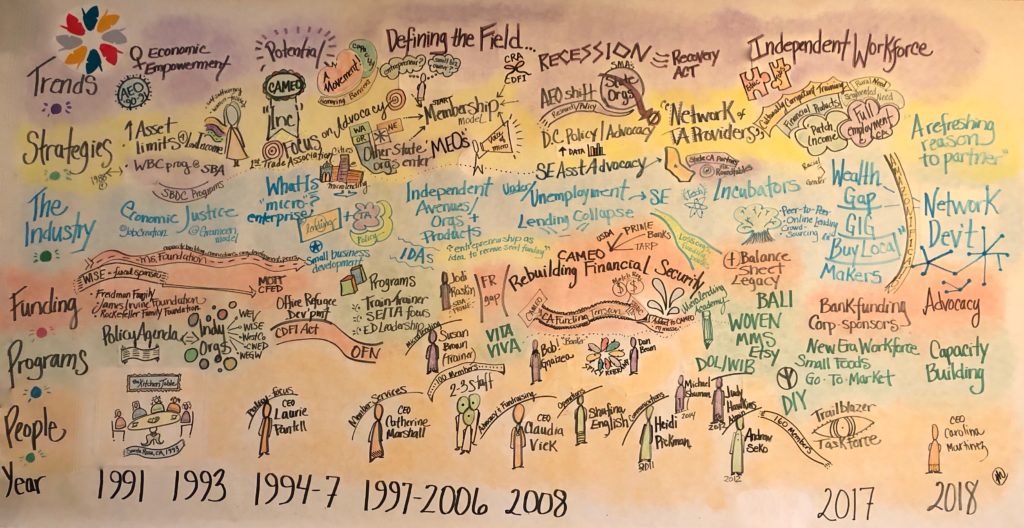 Trends
Economic
Empowerment
AEO
Potential
CAMEO
"Inc"
A Movement!
Defining the Field...
entrepreneur?
small biz owner?
CRA
CDFI
RECESSION
SMAs
State Orgs
Recovery
ACT
Independent Workforce
Culturally Competent Training
Financial Products
Patch
Income
Full
employment
etc.
Strategies
↑ Asset
limits
Income
WBC prog @ SBA
SBDC Programs
FOCUS on Advocacy
1st Trade Association
Cities
microlending
WA
OR
NE
Other State
orgs enter
START
Membership
model
MEOs
AEO shift
Research/Policy
D.C. Policy/Advocacy
↑ DATA
SE Asst Advocacy
"Network of
TA Providers"
State CA Partners
Roundtables
Racial
Gender
A refreshing
reason
to partner"
The
Industry
Economic Justice
@Job Creation
@Grameen
model
What Is
"micro-?
enterprise?
lending
+
TA
Policy
Small business
development
Independent
Avenues/
Orgs +
Products
IDAs
"entrepreneurship as
idea to receive seed funding"
Under/
Unemployment → SE
Lending Collapse
(Tech)
Incubators
Peer-to-Peer
Online lending
Crowd-
Sourcing
Wealth
Gap
GIG
"Buy Local"
Makers
Network
Dev't
Funding
capacity building
Foundation
WISE - fund sponsor
• Freidman Family
• James Irvine Foundation
• Rockefeller Family Foundation
MOTT
CFED
Office Refugee
Dev'pmt
CDFI Act
OFN
Programs
Train-trainer
SE/TA focus
ED Leadership
Jodi
Raskin
FR
gap
CAMEO
Rebuilding Financial Security
USDA
PRIME
Banks
TARP
CA Funding Tension
+ Balance
Sheet
Legacy
Bankfunding
Corp-sponsors
Advocacy
Programs
Policy Agenda
Indy
Orgs
WEV
WISE
WestCo
CWED
WEGW
Susan
Brown
(trainer)
VITA
VIVA
"Bob"
Friant
Dan
Brown
Microlending
Academy
BALI
WOVEN
MMS
Etsy
DOL/WIB
New Era Workforce
Small Foods
Go-To Market
DIY
Capacity
Building
People
@a Kitchen Table
Santa Rosa, CA 1993
Policy focus
CEO
Laurie
Member Services
CEO
Catherine
Marshall
100 Members
2-3 staff
Advocacy + Fundraising
CEO
Claudia
Viek
Operations
Shafina
English
Communications
Heidi
Pickman
2011
Michael
Shuman
2014
Judy
Hawkins
Andrew
Seko
2012
160 Members
Trailblazer
Taskforce
CEO
Carolina
Martinez
Year
1991
1993
1994-7
1997-2006
2008
2017
2018